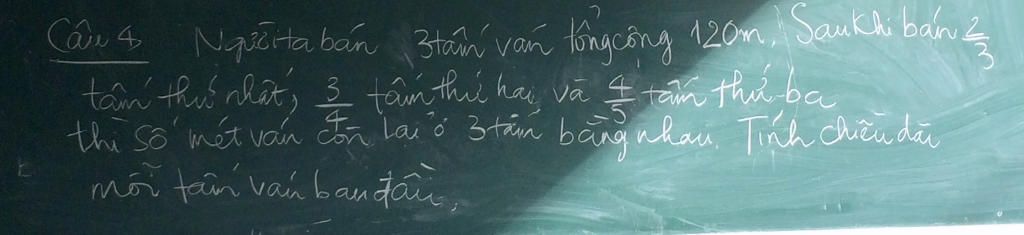 Câu 4 Người ta bán 3 tấm ván tổng cộng 120m. Sau khi bán 2/3
tấm thứ nhất, 3/4 tấm thứ hai và 4/5 tấm thứ ba
thì số mét ván còn lại ở 3 tấm bằng nhau. Tính chiều dài
mỗi tấm ván ban đầu.